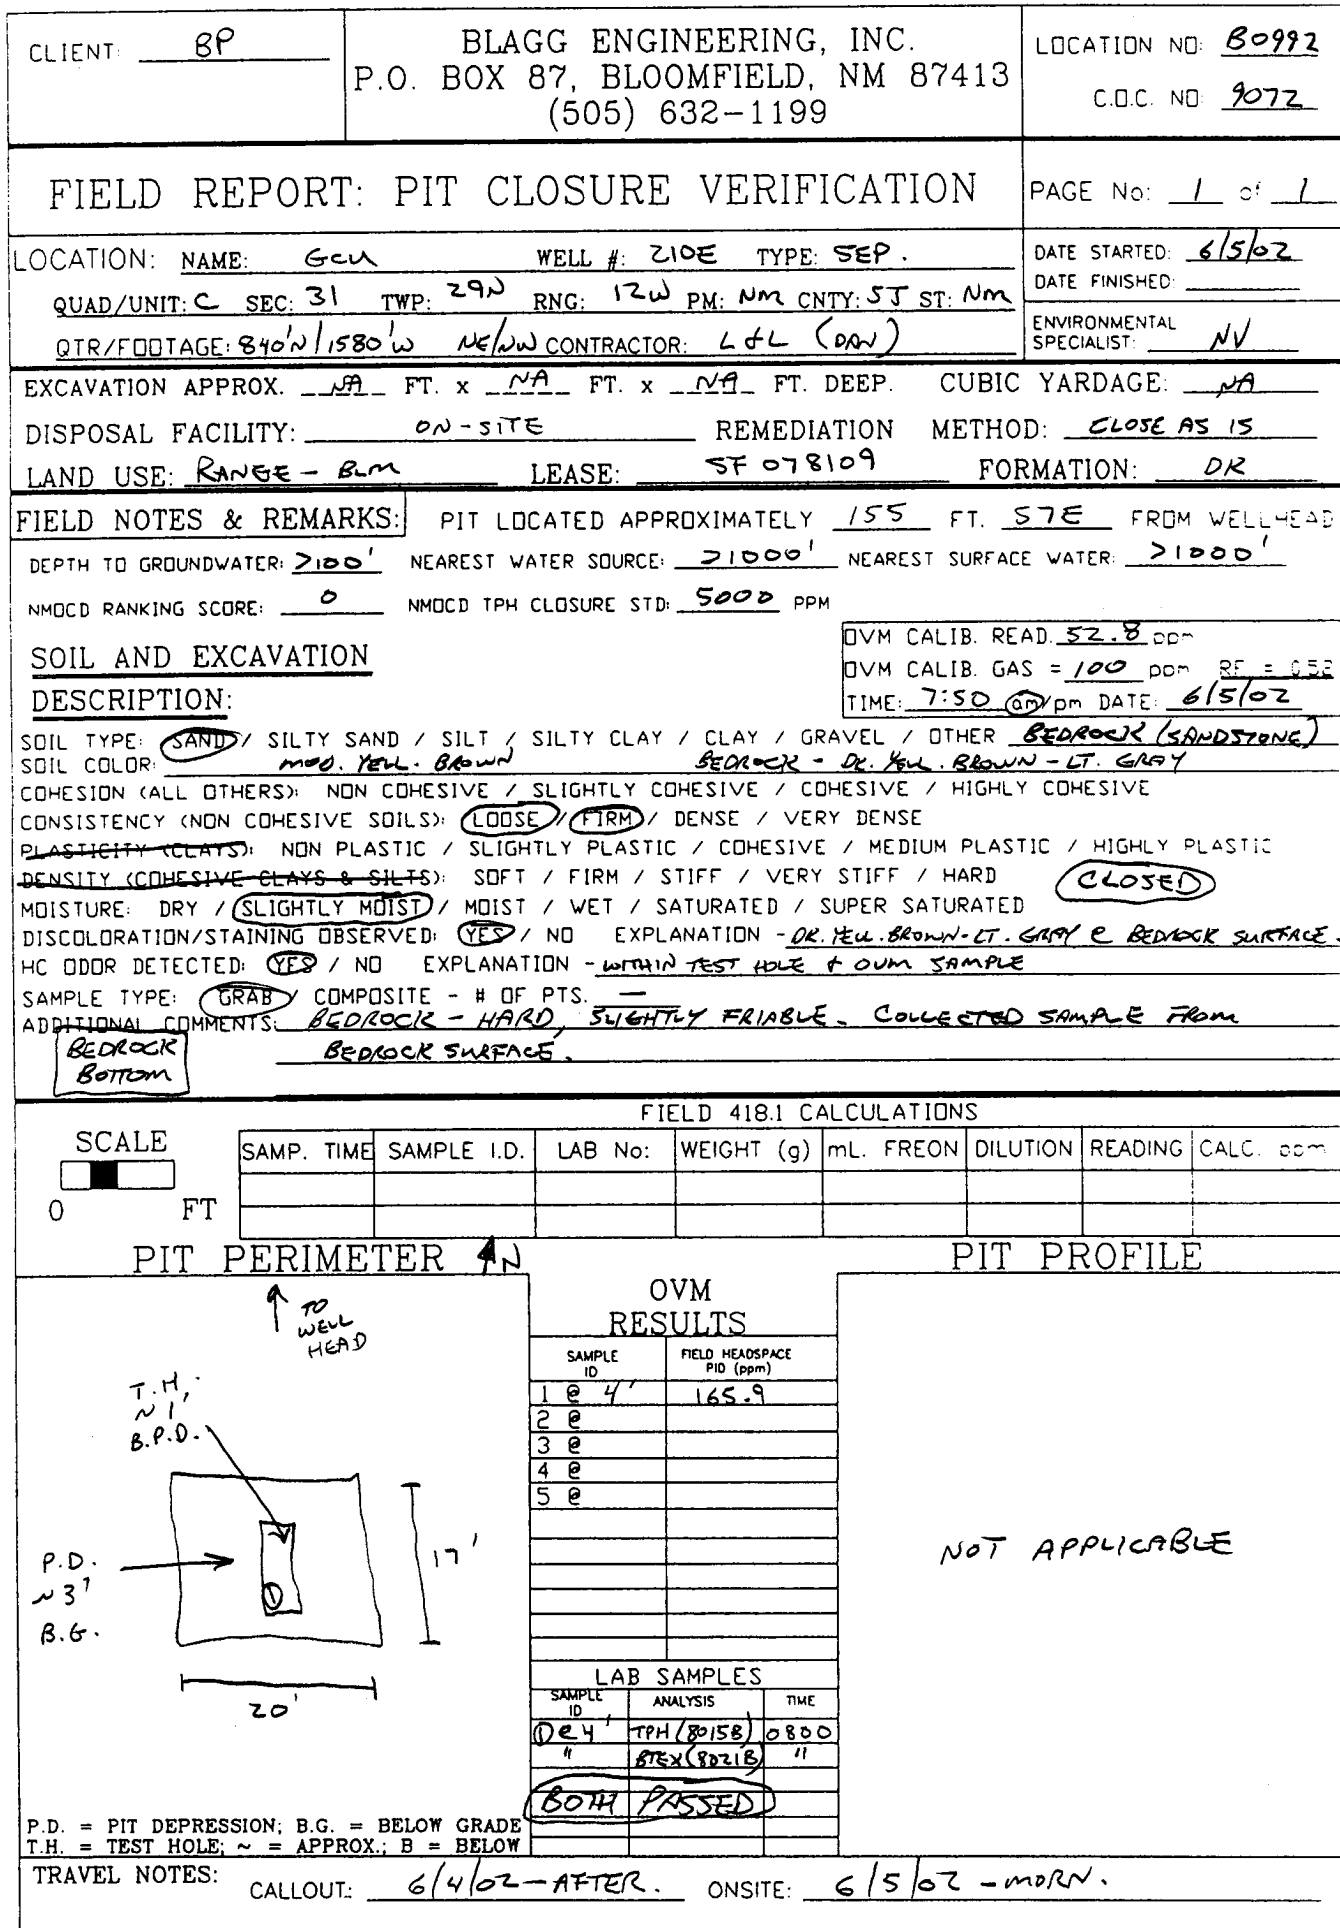 CLIENT: BP
BLAGG ENGINEERING, INC.
P.O. BOX 87, BLOOMFIELD, NM 87413
(505) 632-1199
LOCATION NO: B0992
C.O.C. NO: 9072
FIELD REPORT: PIT CLOSURE VERIFICATION
PAGE No: 1 of 1
LOCATION: NAME: GCU WELL #: 210E TYPE: SEP.
QUAD/UNIT: C SEC: 31 TWP: 29N RNG: 12W PM: NM CNTY: SJ ST: NM
QTR/FOOTAGE: 840'N/1580'W NE/NW CONTRACTOR: L&L (DAN)
DATE STARTED: 6/5/02
DATE FINISHED:
ENVIRONMENTAL
SPECIALIST: NV
EXCAVATION APPROX. NA FT. x NA FT. x NA FT. DEEP. CUBIC YARDAGE: NA
DISPOSAL FACILITY: ON-SITE REMEDIATION METHOD: CLOSE AS IS
LAND USE: RANGE - BLM LEASE: SF 078109 FORMATION: DK
FIELD NOTES & REMARKS: PIT LOCATED APPROXIMATELY 155 FT. S7E FROM WELLHEAD
DEPTH TO GROUNDWATER: >100' NEAREST WATER SOURCE: >1000' NEAREST SURFACE WATER: >1000'
NMOCD RANKING SCORE: 0 NMOCD TPH CLOSURE STD: 5000 PPM
SOIL AND EXCAVATION
DESCRIPTION:
OVM CALIB. READ. 52.8 ppm
OVM CALIB. GAS = 100 ppm RF = 0.52
TIME: 7:50 am/pm DATE: 6/5/02
SOIL TYPE: SAND / SILTY SAND / SILT / SILTY CLAY / CLAY / GRAVEL / OTHER BEDROCK (SANDSTONE)
SOIL COLOR: MOD. YELL. BROWN BEDROCK - DK. YELL. BROWN - LT. GRAY
COHESION (ALL OTHERS): NON COHESIVE / SLIGHTLY COHESIVE / COHESIVE / HIGHLY COHESIVE
CONSISTENCY (NON COHESIVE SOILS): LOOSE / FIRM / DENSE / VERY DENSE
PLASTICITY (CLAYS): NON PLASTIC / SLIGHTLY PLASTIC / COHESIVE / MEDIUM PLASTIC / HIGHLY PLASTIC
DENSITY (COHESIVE CLAYS & SILTS): SOFT / FIRM / STIFF / VERY STIFF / HARD CLOSED
MOISTURE: DRY / SLIGHTLY MOIST / MOIST / WET / SATURATED / SUPER SATURATED
DISCOLORATION/STAINING OBSERVED: YES / NO EXPLANATION - DK. YELL. BROWN-LT. GRAY @ BEDROCK SURFACE.
HC ODOR DETECTED: YES / NO EXPLANATION - WITHIN TEST HOLE & OVM SAMPLE
SAMPLE TYPE: GRAB / COMPOSITE - # OF PTS. —
ADDITIONAL COMMENTS: BEDROCK - HARD, SLIGHTLY FRIABLE. COLLECTED SAMPLE FROM
BEDROCK SURFACE.
BEDROCK
BOTTOM
FIELD 418.1 CALCULATIONS
SCALE
0 FT
SAMP. TIME SAMPLE I.D. LAB No: WEIGHT (g) mL. FREON DILUTION READING CALC. ppm
PIT PERIMETER N
PIT PROFILE
TO
WELL
HEAD
T.H.
~1'
B.P.D.
P.D.
~3'
B.G.
1
17'
20'
OVM
RESULTS
SAMPLE ID FIELD HEADSPACE PID (ppm)
1 @ 4' 165.9
2 @
3 @
4 @
5 @
NOT APPLICABLE
LAB SAMPLES
SAMPLE ID ANALYSIS TIME
1@4' TPH (8015B) 0800
" BTEX (8021B) "
BOTH PASSED
P.D. = PIT DEPRESSION; B.G. = BELOW GRADE
T.H. = TEST HOLE; ~ = APPROX.; B = BELOW
TRAVEL NOTES: CALLOUT: 6/4/02 - AFTER. ONSITE: 6/5/02 - MORN.